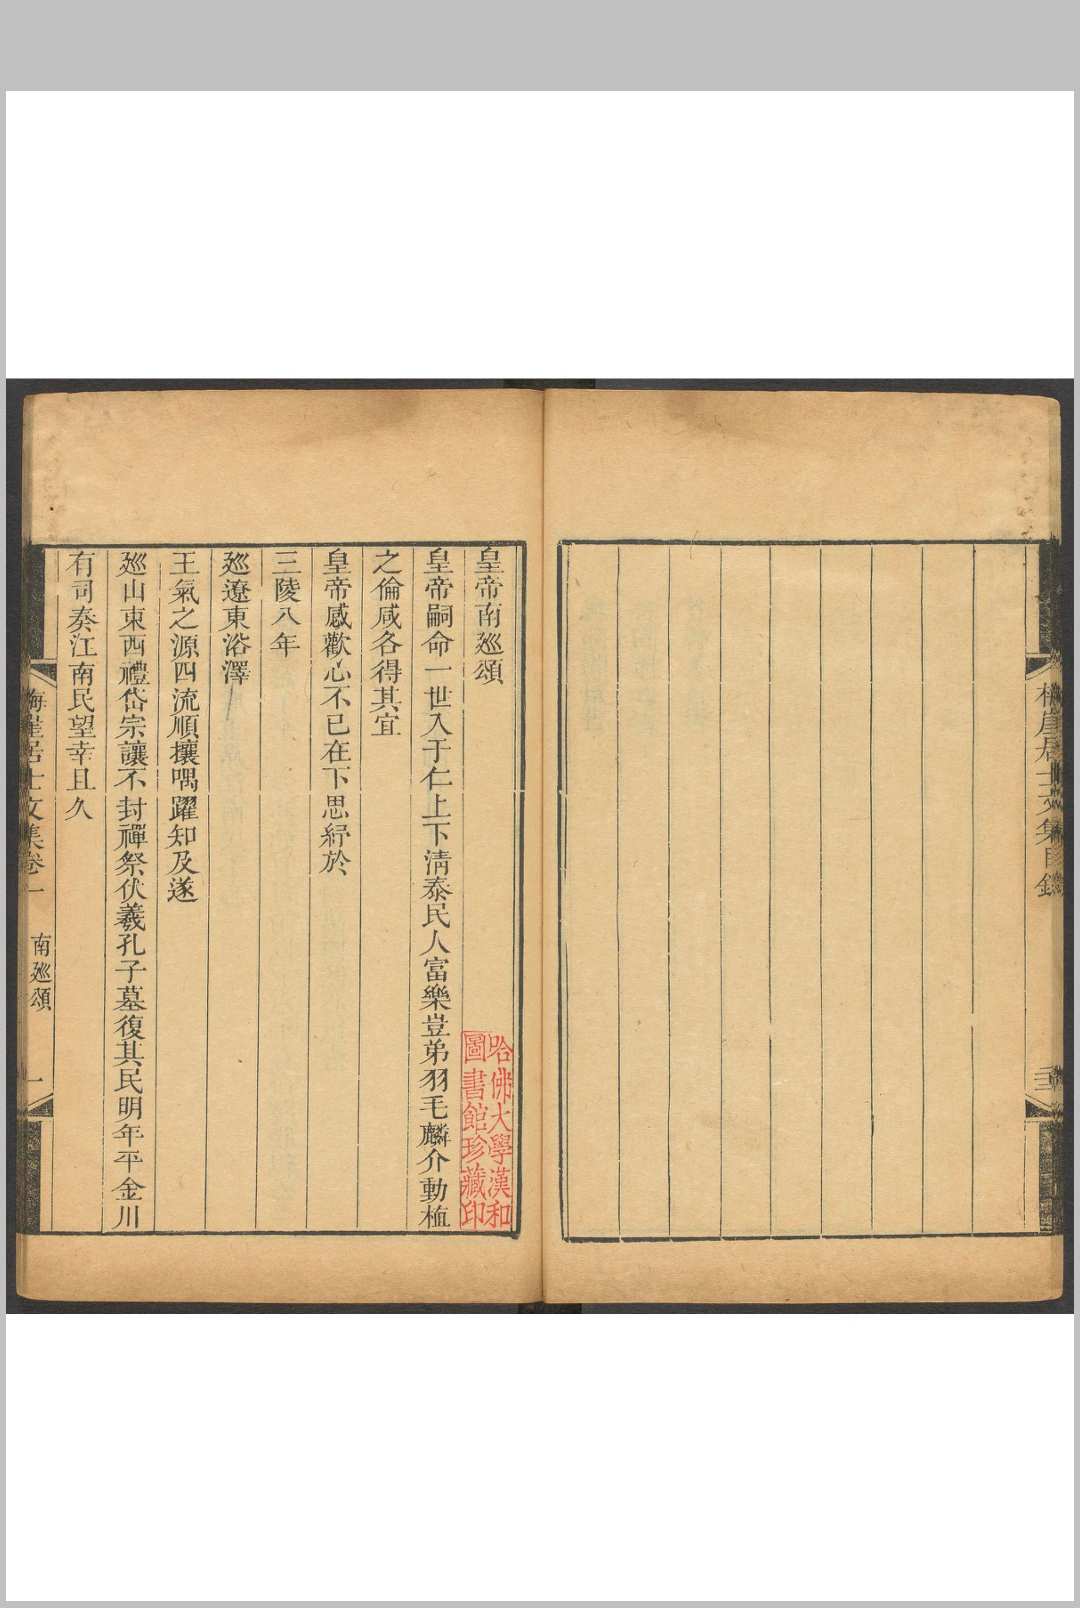 梅崖居士文集目錄
皇帝南廵頌
皇帝嗣命一世入于仁上下淸泰民人富樂豈弟羽毛麟介動植
之倫咸各得其宜
皇帝感歡心不已在下思紓於
三陵八年
廵遼東浴澤
王氣之源四流順壤喁躍知及遂
廵山東西禮岱宗讓不封禪祭伏羲孔子墓復其民明年平金川
有司奏江南民望幸且久
梅崖居士文集卷一 南廵頌 一
哈佛大學漢和
圖書館珍藏印